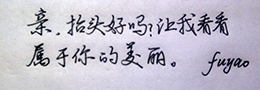 亲,抬头好吗?让我看看
属于你的美丽。 fuyao